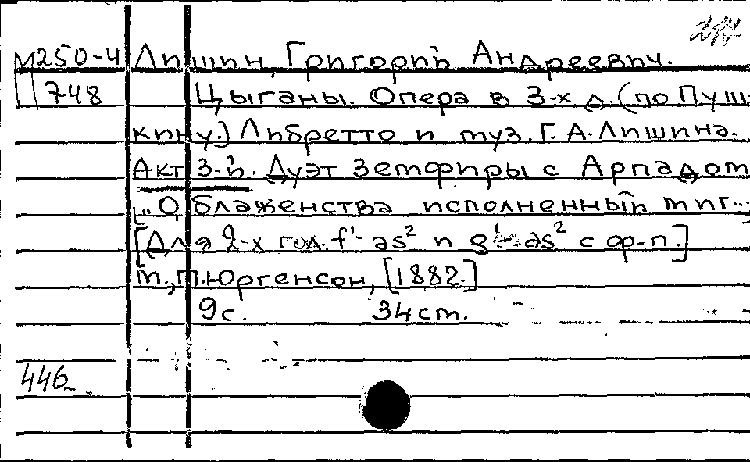 М250-4 Лишин, Григорий Андреевич.
748 Цыганы. Опера в 3-х д. (по Пуш-
кину.) Либретто и муз. Г. А. Лишина.
Акт 3-й. Дуэт Земфиры с Арпадом
„О, блаженства исполненный миг..."
[Для 2-х гол. f¹- as² и g¹- as² с ф-п.]
М., П. Юргенсон, [1882.]
9 с. 34 см.
446